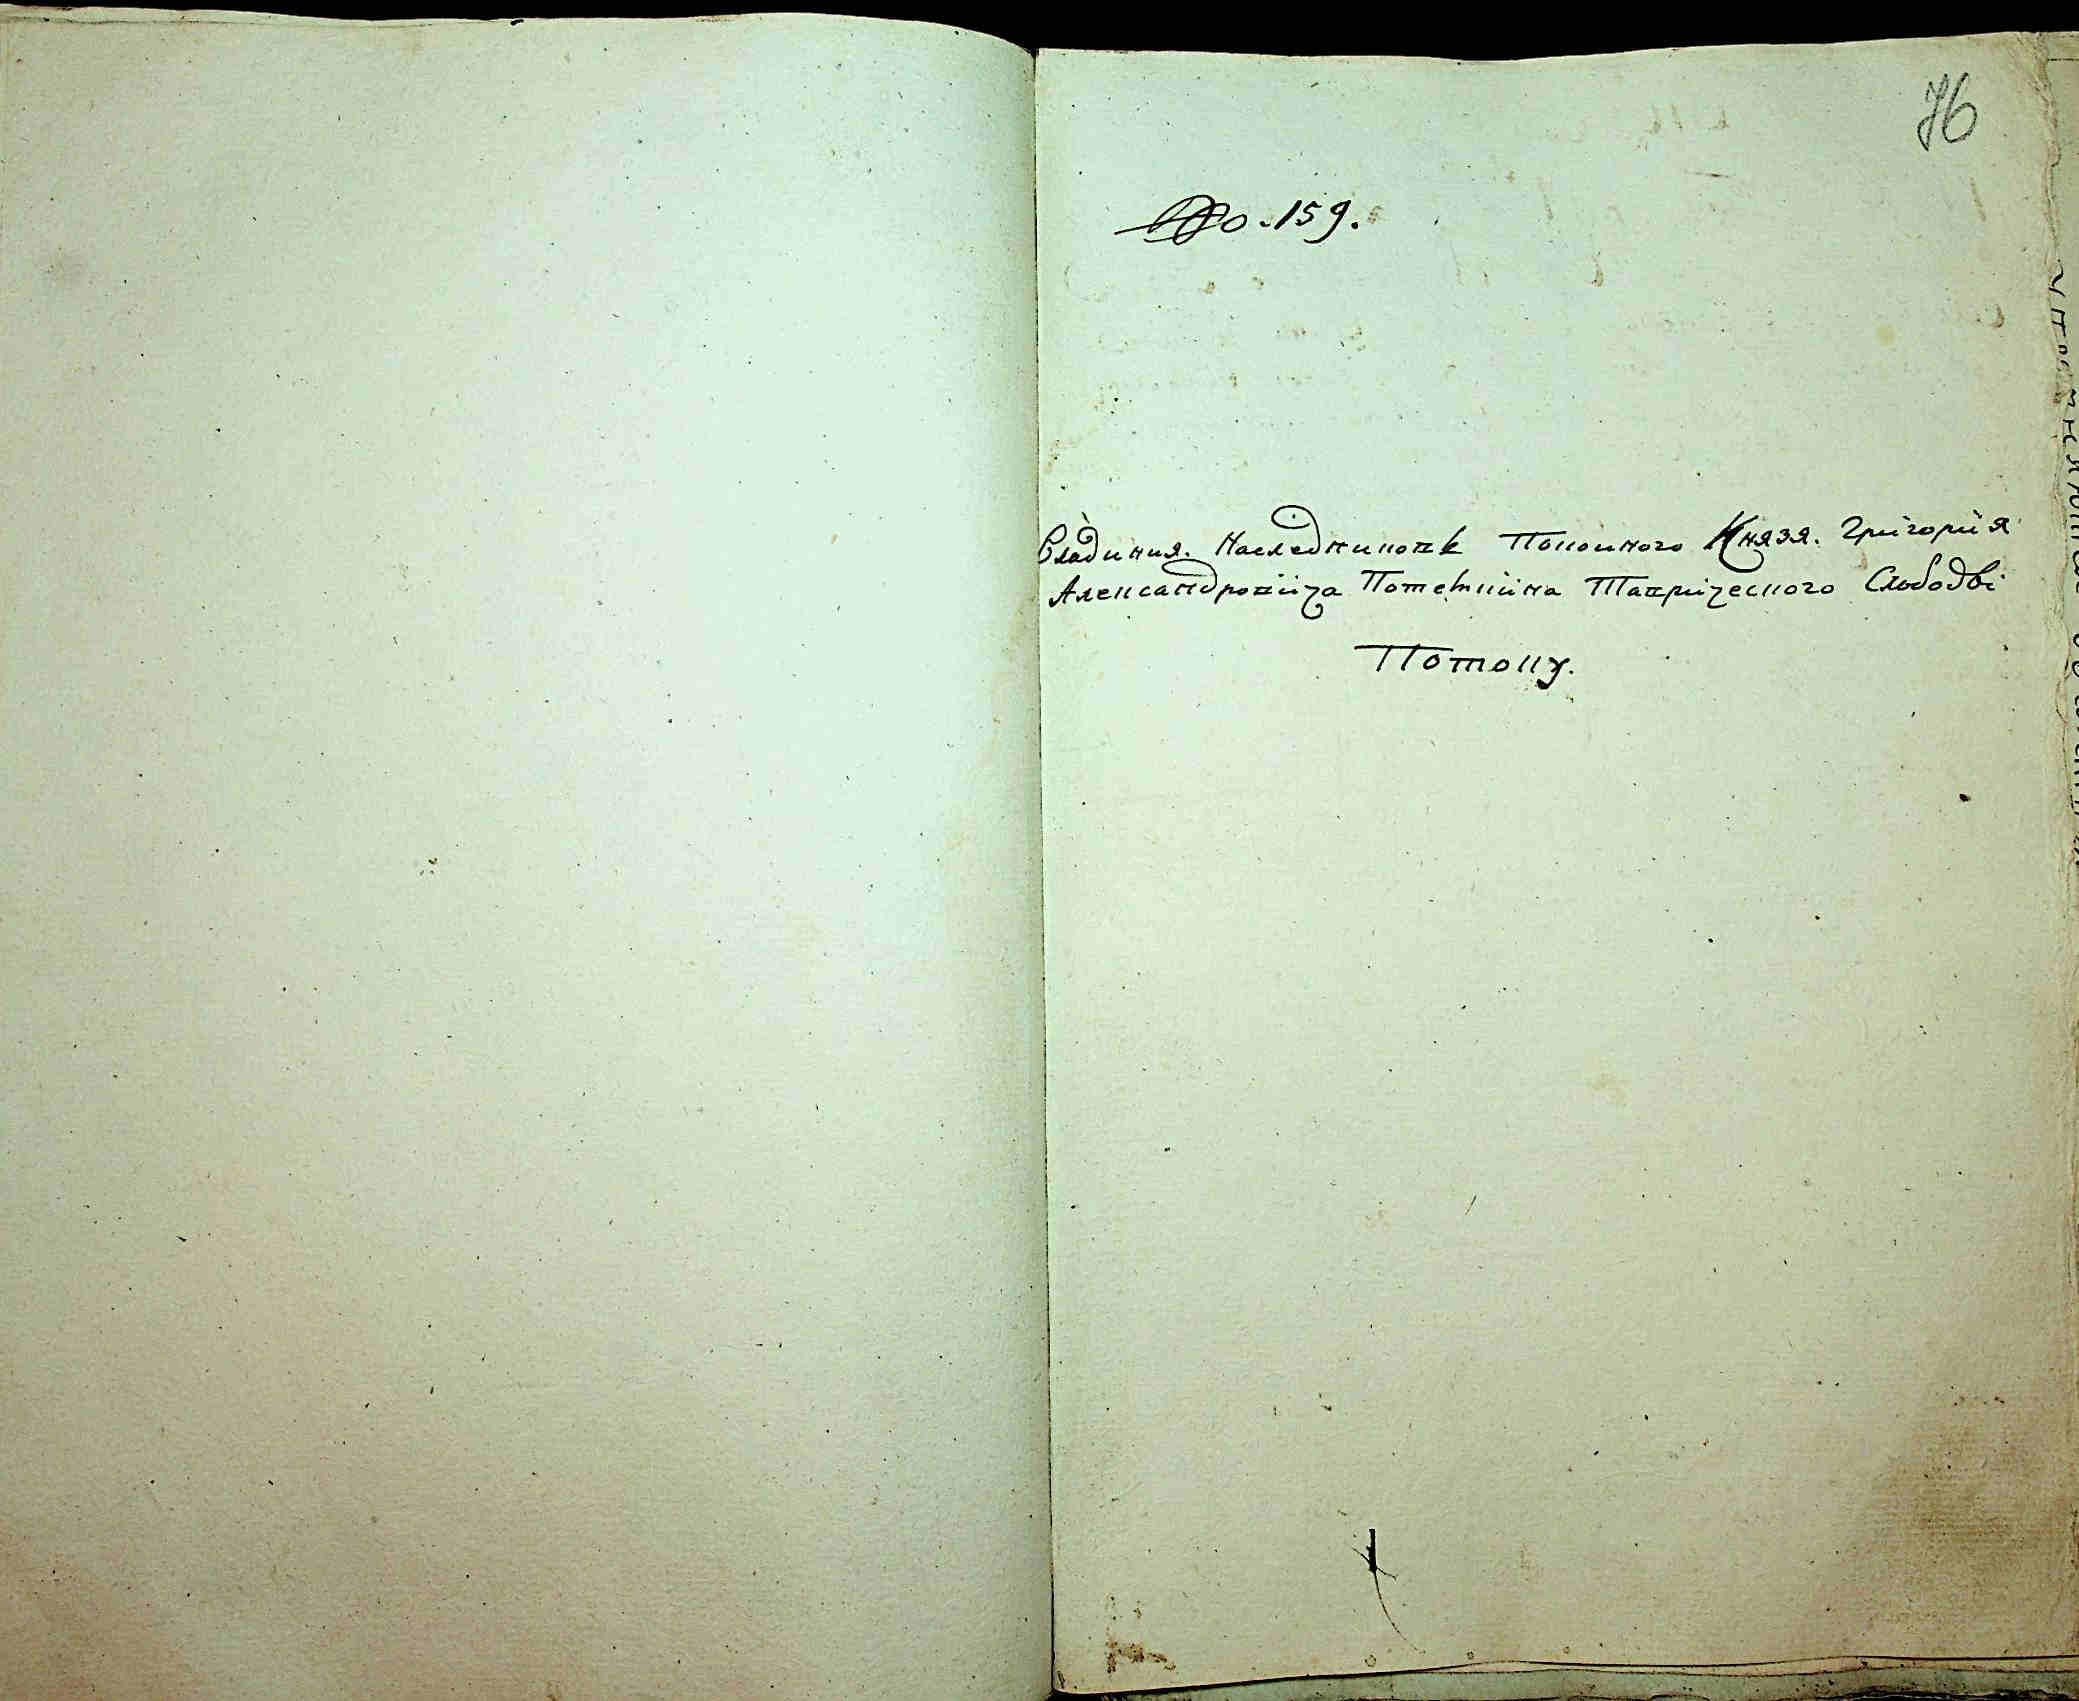 76
No. 159.
Владиния. Наследниковъ Покоиного Князя. Григория
Александровича Потемкина Таврического Слободы
Потоку.